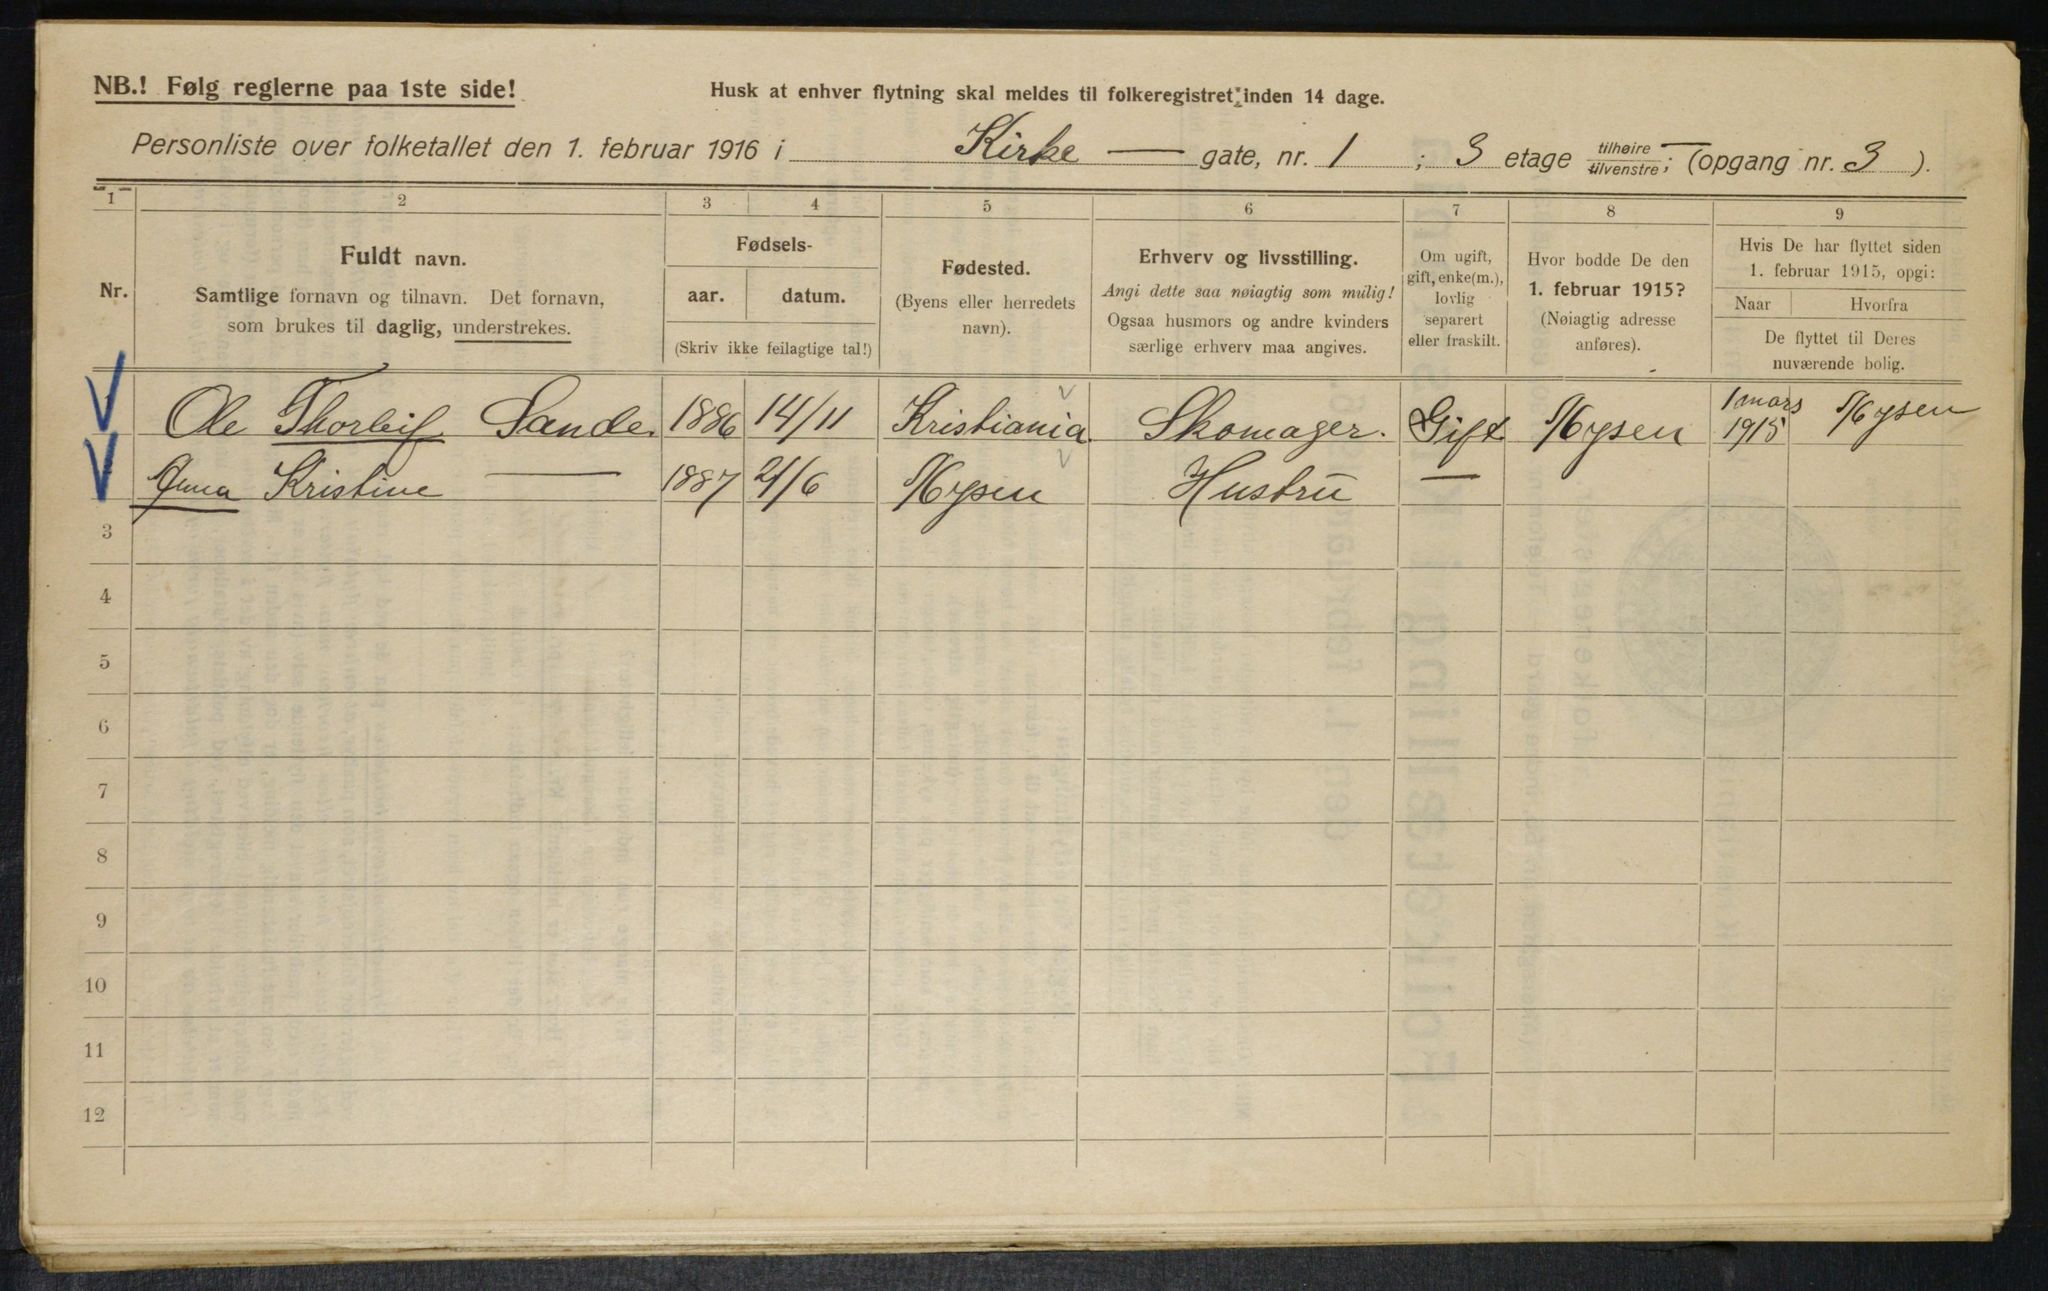 NB.! Følg reglerne paa 1ste side!
Husk at enhver flytning skal meldes til folkeregistret inden 14 dage.
Personliste over folketallet den 1. februar 1916 i Kirke — gate, nr. 1 ; 3 etage tilhøire/tilvenstre; (opgang nr. 3 ).
1 2 3 4 5 6 7 8 9
Nr.
Fuldt navn.
Samtlige fornavn og tilnavn. Det fornavn,
som brukes til daglig, understrekes.
Fødsels-
aar. datum.
(Skriv ikke feilagtige tal!)
Fødested.
(Byens eller herredets
navn).
Erhverv og livsstilling.
Angi dette saa nøiagtig som mulig!
Ogsaa husmors og andre kvinders
særlige erhverv maa angives.
Om ugift,
gift, enke(m.),
lovlig
separert
eller fraskilt.
Hvor bodde De den
1. februar 1915?
(Nøiagtig adresse
anføres).
Hvis De har flyttet siden
1. februar 1915, opgi:
Naar Hvorfra
De flyttet til Deres
nuværende bolig.
Ole Thorleif Sande. 1886 14/11 Kristiania. Skomager. Gift Mysen 1 mars 1915 Mysen
Anna Kristine — 1887 21/6 Mysen Hustru —
3
4
5
6
7
8
9
10
11
12